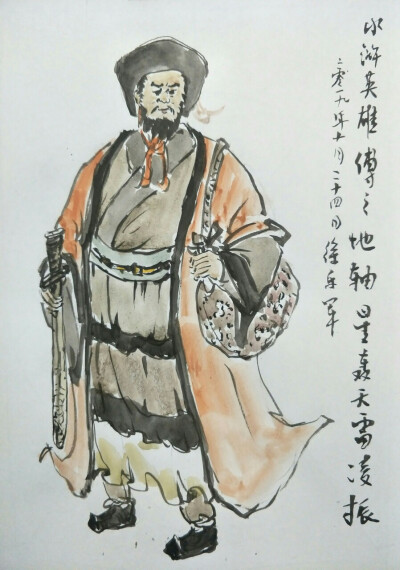 水浒英雄傳之地軸星轰天雷凌振
二零一九年十月二十四日徐军